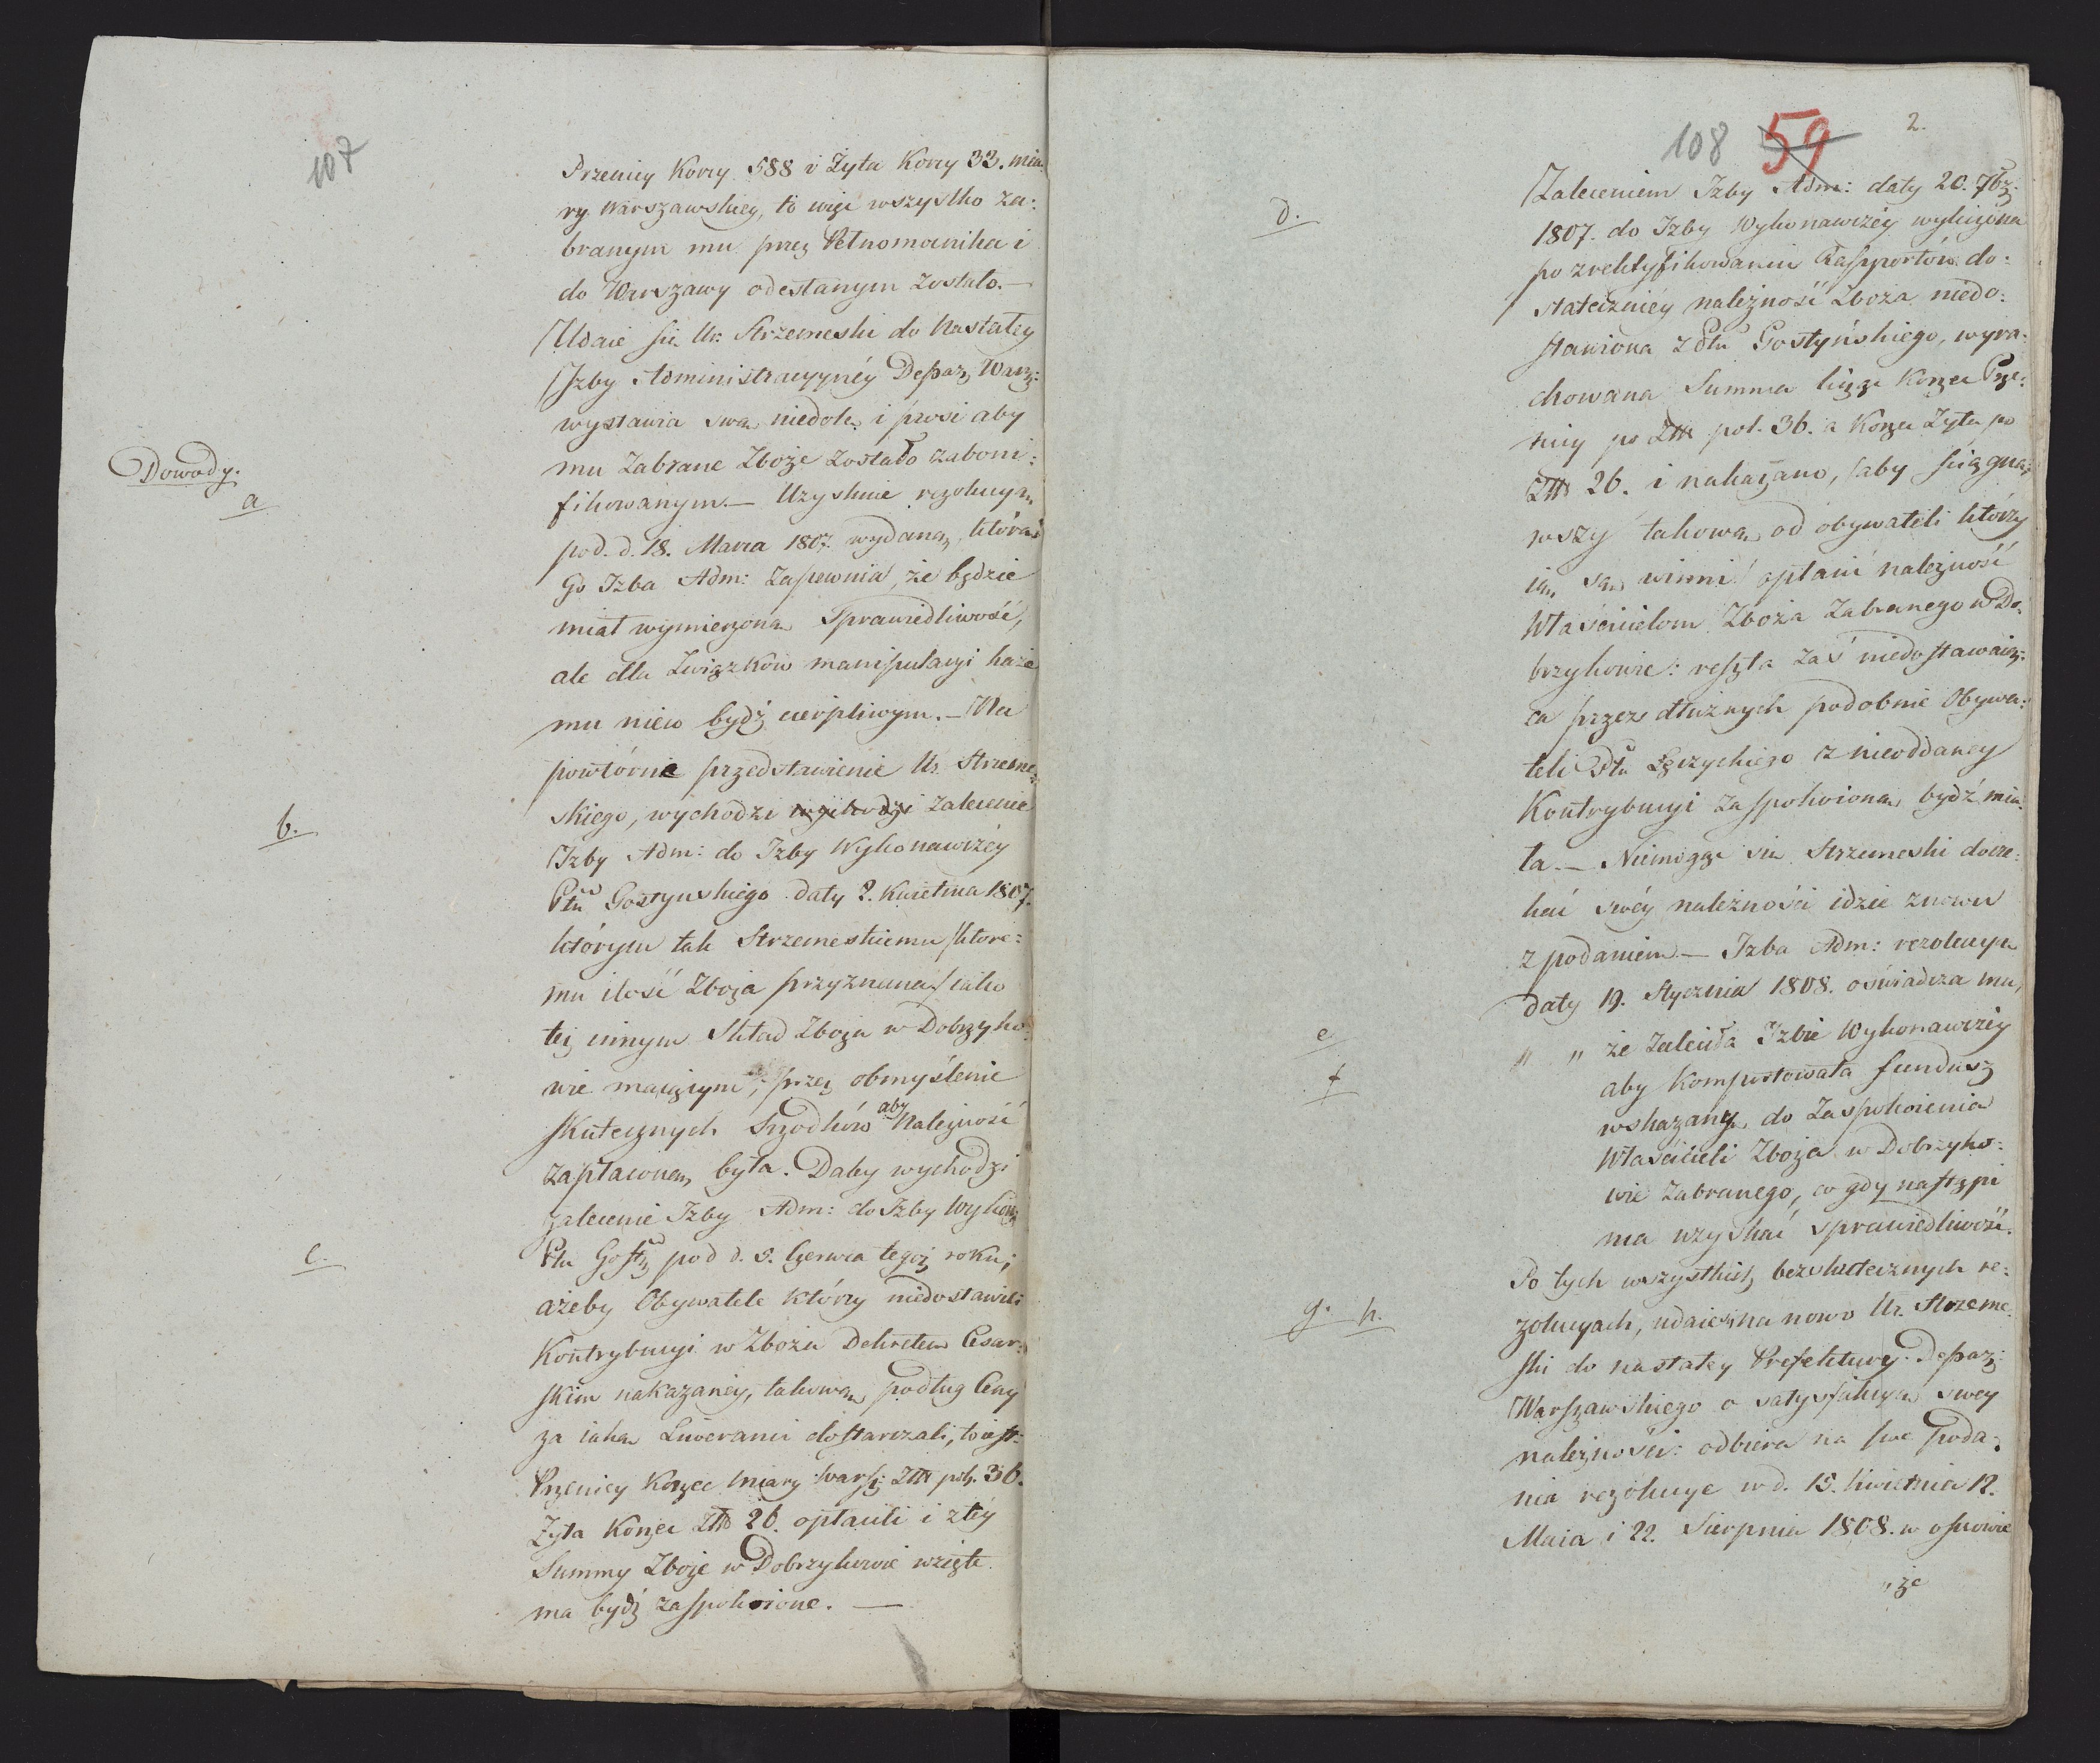 107
Przenicy Korcy 588 i Żyta Korcy 33. mia:
ry Warszawskiey, to więc wszystko za:
branym mu przez Pełnomocnika i
do Warszawy odesłanym zostało.—
Udaie się Ur: Strzemeski do nastałey
Izby Administracyynéy Depar, Warsz:
wystawia swą niedolą i prosi aby
mu zabrane Zboże zostało zaboni:
fikowanym.— Uzyskuie rezolucyą
pod. d. 18. Marca 1807. wydaną, którą
Go Izba Adm: zapewnia, że będzie
miał wymierzoną Sprawiedliwość,
ale dla Związków manipulacyi każe
mu nieco bydź cierpliwym.— Na
powtórne przedstawienie Ur. Strzeme:
skiego, wychodzi wychodzi zalecenie
Izby Adm: do Izby Wykonawczéy
Ptu Gostynskiego daty 2. Kwietnia 1807.
którym tak Strzemeskiemu /które:
mu ilość Zboża przyznana/ iako
też innym Skład Zboża w Dobrzyko:
wie maiącym, przez obmyślenie
skutecznych Srzodków aby Należność
zapłaconą była. Daley wychodzi
zalecenie Izby Adm: do Izby Wykon:
Ptu Gosty pod d. 5. Czerwca tegoż roku,
ażeby Obywatele którzy niedostawili
Kontrybucyi w Zbożu Dekretem Cesar:
skim nakazaney, takową podług Ceny
za iaką Liweranci dostarczali, to iest:
Przenicy Korzec miary Warsz: Złł pol. 36.
Żyta Korzec Złł 26. opłacili i z téy
Summy Zboże w Dobrzykowie wzięte
ma bydź zaspokoione. —
Dowody.
a
b.
c.
108 59 2.
Zaleceniem Izby Adm: daty 20. 7br:
1807. do Izby Wykonawczéy wyłączona
po zrektyfikowaniu Rapportów do:
stateczniéy należność Zboża niedo:
stawiona z Ptu Gostyńskiego, wyra:
chowana Summa licząc Korzec Prze:
nicy po Złł pol. 36. a Korzec Żyta po
Złł 26. i nakazano, aby ściągną:
wszy takową od obywateli którzy
ią są winni opłacić należność
Właścicielom Zboża Zabranego w Do:
brzykowie: reszta zaś niedostawaią:
ca przez dłużnych podobnie Obywa:
teli Ptu Łęczyckiego z nieoddaney
Kontrybucyi zaspokoioną bydź mia:
ła.— Niemogąc się Strzemeski docze:
kać swéy należności idzie znowu
z podaniem.— Izba Adm: rezolucyą
daty 19. Stycznia 1808. oświadcza mu,
„ „ że zaleciła Izbie Wykonawczéy
aby kompustowała fundusz
wskazany do Zaspokoienia
Właścicieli Zboża w Dobrzyko:
wie zabranego, co gdy nastąpi
ma uzyskać sprawiedliwość.
Po tych wszystkich bezskutecznych re:
zolucyach, udaie się na nowo Ur. Strzeme:
ski do nastałey Prefektury Depar:
Warszawskiego o satysfakcyą swey
należności: odbiera na swe poda:
nia rezolucye w d. 15. Kwietnia 12.
Maia i 22. Sierpnia 1808. w osnowie
„że
d.
e.
f
g. h.